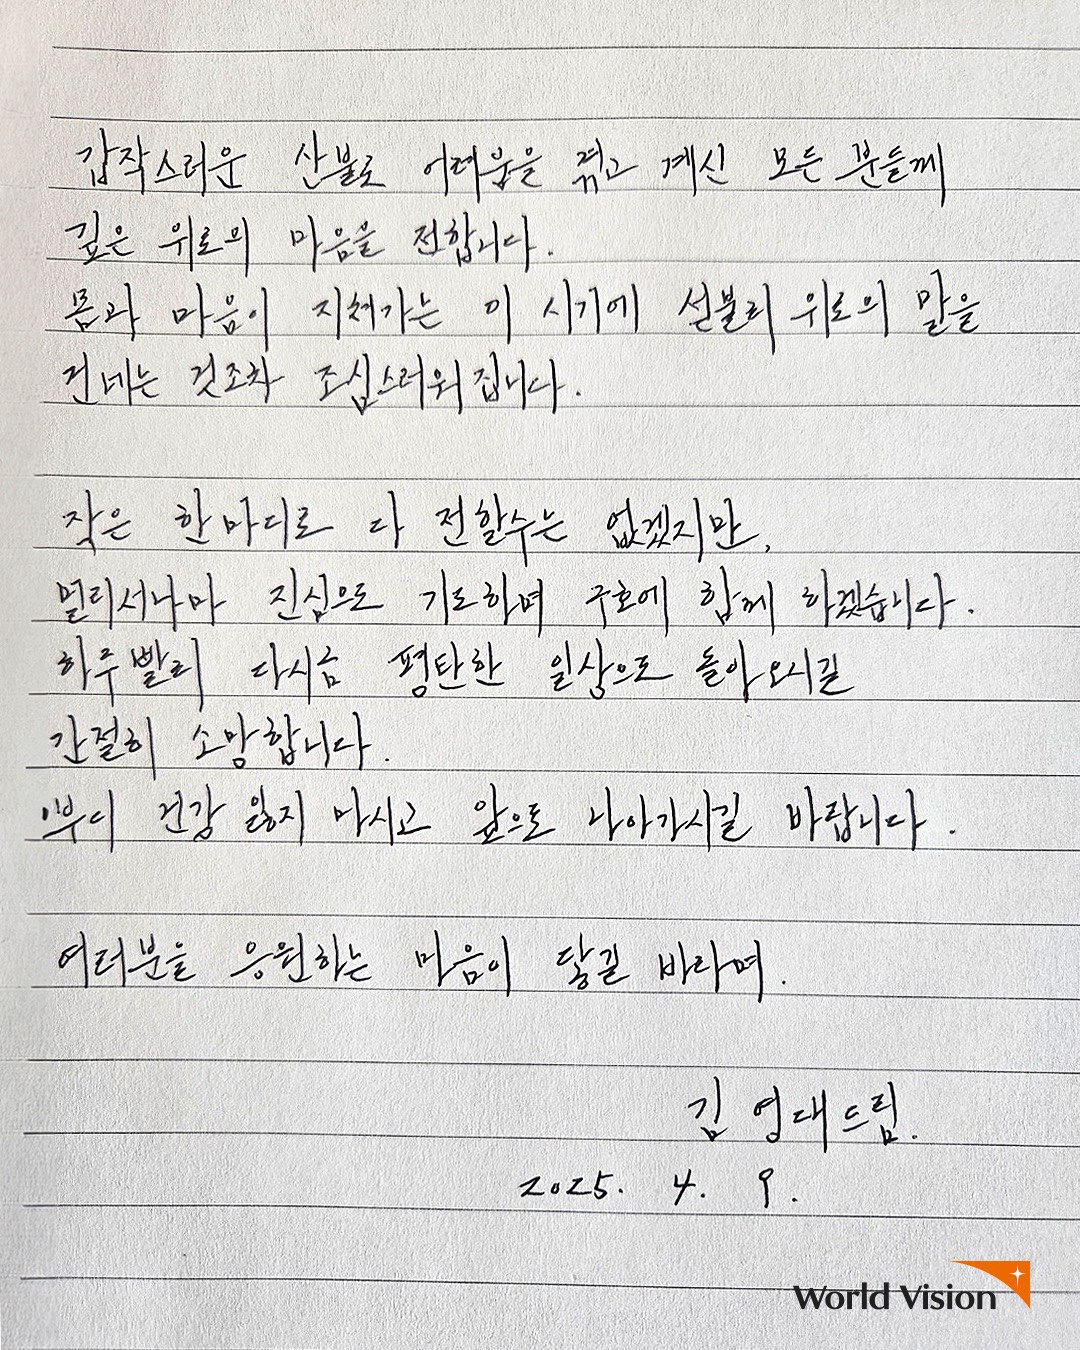 갑작스러운 산불로 어려움을 겪고 계신 모든 분들께
깊은 위로의 마음을 전합니다.
몸과 마음이 지쳐가는 이 시기에 섣불리 위로의 말을
건네는 것조차 조심스러워집니다.
작은 한마디로 다 전할수는 없겠지만,
멀리서나마 진심으로 기도하며 구호에 함께 하겠습니다.
하루빨리 다시금 평탄한 일상으로 돌아오시길
간절히 소망합니다.
부디 건강 잃지 마시고 앞으로 나아가시길 바랍니다.
여러분을 응원하는 마음이 닿길 바라며.
김영대드림.
2025. 4. 9.
World Vision